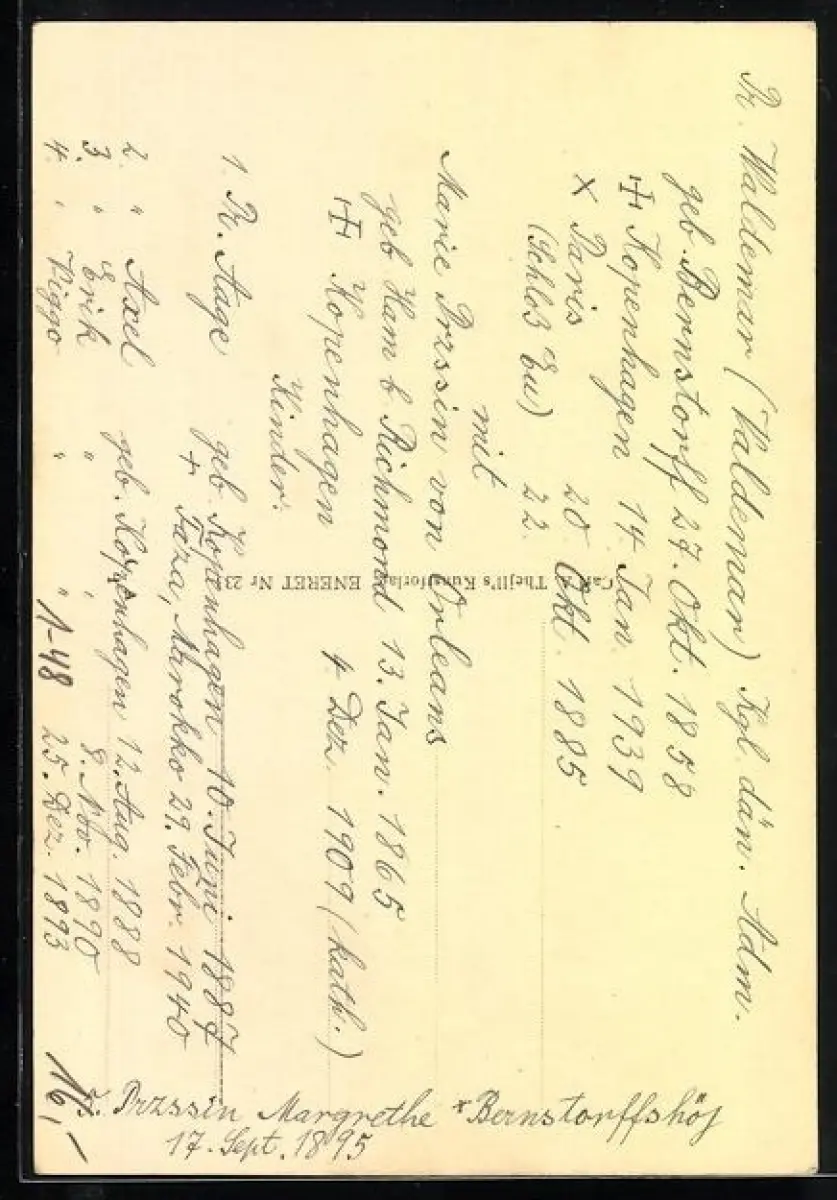 Pr. Waldemar (Valdemar) Kgl. dän. Adm.
geb. Bernstorff 27. Okt. 1858
✠ Kopenhagen 14 Jan 1939
× Paris 20 Okt. 1885
(Schloß Eu) 22.
mit
Marie Przssin von Orleans
geb Ham b Richmond 13. Jan. 1865
✠ Kopenhagen 4 Dez. 1909 (kath.)
Kinder:
1. Pr. Aage geb Kopenhagen 10. Juni 1887
+ Taza, Marokko 29. Febr. 1940
2. " Axel geb. Kopenhagen 12. Aug. 1888
3. " Erik " " 8. Nov. 1890
4. " Viggo " " 25. Dez. 1893
5. Przssin Margrethe × Bernstorffshöj
17. Sept. 1895
1-48
16,-
Carl A. Thejll's Kunstforlag ENERET Nr 23